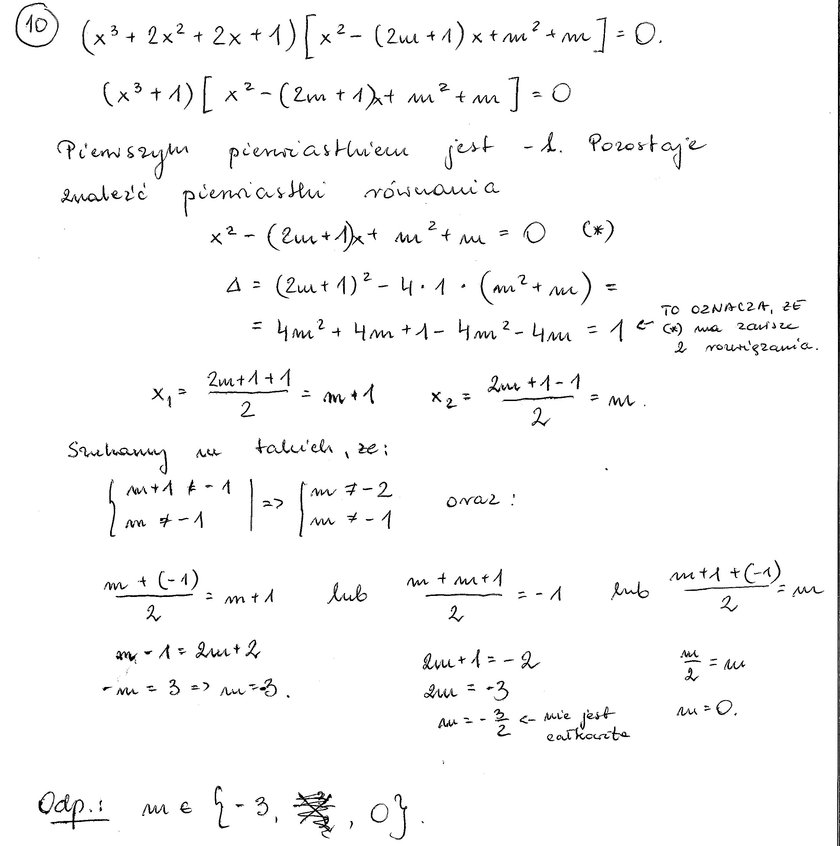 10 (x³ + 2x² + 2x + 1) [x² - (2m + 1) x + m² + m] = 0.
(x³ + 1) [x² - (2m + 1)x + m² + m] = 0
Pierwszym pierwiastkiem jest -1. Pozostaje
znaleźć pierwiastki równania
x² - (2m+1)x + m² + m = 0 (*)
Δ = (2m+1)² - 4 · 1 · (m² + m) =
= 4m² + 4m + 1 - 4m² - 4m = 1 ← TO OZNACZA, ŻE
(*) ma zawsze
2 rozwiązania.
x₁ = (2m+1+1)/2 = m+1 x₂ = (2m+1-1)/2 = m.
Szukamy m takich, że:
{ m+1 ≠ -1 | => { m ≠ -2 oraz:
{ m ≠ -1 | { m ≠ -1
(m + (-1))/2 = m+1 lub (m + m+1)/2 = -1 lub (m+1 + (-1))/2 = m
m - 1 = 2m+2 2m+1 = -2 m/2 = m
-m = 3 => m = -3. 2m = -3 m = 0.
m = -3/2 ← nie jest
całkowite
Odp.: m ∈ {-3, , 0}.